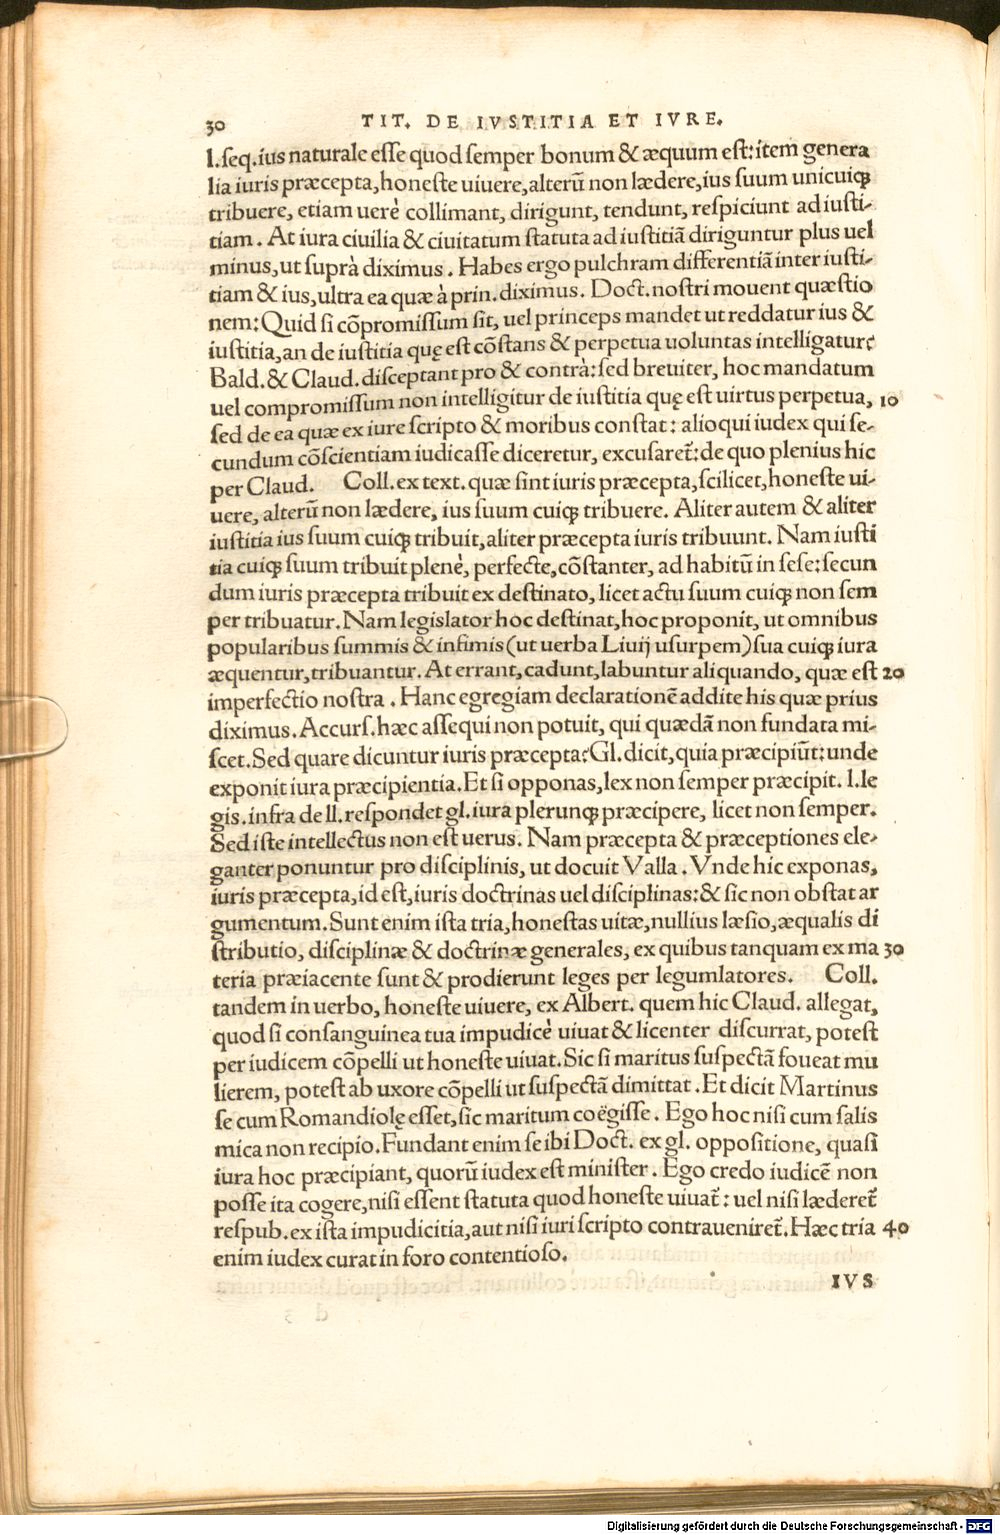 30 TIT. DE IVSTITIA ET IVRE.
l.seq.ius naturale esse quod semper bonum & æquum est:item genera
lia iuris præcepta,honeste uiuere,alterũ non lædere,ius suum unicuiqꝫ
tribuere, etiam uerè collimant, dirigunt, tendunt, respiciunt ad iusti-
tiam. At iura ciuilia & ciuitatum statuta ad iustitiã diriguntur plus uel
minus,ut suprà diximus. Habes ergo pulchram differentiã inter iusti-
tiam & ius,ultra ea quæ à prin.diximus. Doct.nostri mouent quæstio
nem:Quid si cõpromissum sit, uel princeps mandet ut reddatur ius &
iustitia,an de iustitia quę est cõstans & perpetua uoluntas intelligatur?
Bald.& Claud.disceptant pro & contrà:sed breuiter, hoc mandatum
uel compromissum non intelligitur de iustitia quę est uirtus perpetua, 10
sed de ea quæ ex iure scripto & moribus constat: alioqui iudex qui se-
cundum cõscientiam iudicasse diceretur, excusaret̃:de quo plenius hic
per Claud. Coll.ex text.quæ sint iuris præcepta,scilicet,honeste ui-
uere, alterũ non lædere, ius suum cuiqꝫ tribuere. Aliter autem & aliter
iustitia ius suum cuiqꝫ tribuit,aliter præcepta iuris tribuunt. Nam iusti
tia cuiqꝫ suum tribuit plenè, perfecte,cõstanter, ad habitũ in sese:secun
dum iuris præcepta tribuit ex destinato, licet actu suum cuiqꝫ non sem
per tribuatur. Nam legislator hoc destinat,hoc proponit, ut omnibus
popularibus summis & infimis(ut uerba Liuij usurpem)sua cuiqꝫ iura
æquentur,tribuantur. At errant,cadunt,labuntur aliquando, quæ est 20
imperfectio nostra. Hanc egregiam declarationẽ addite his quæ prius
diximus. Accurs.hæc assequi non potuit, qui quædã non fundata mi-
scet.Sed quare dicuntur iuris præcepta?Gl.dicit,quia præcipiũt:unde
exponit iura præcipientia.Et si opponas,lex non semper præcipit. l.le
gis.infra de ll.respondet gl.iura plerunqꝫ præcipere, licet non semper.
Sed iste intellectus non est uerus. Nam præcepta & præceptiones ele-
ganter ponuntur pro disciplinis, ut docuit Valla. Vnde hic exponas,
iuris præcepta,id est,iuris doctrinas uel disciplinas:& sic non obstat ar
gumentum.Sunt enim ista tria,honestas uitæ,nullius læsio,æqualis di
stributio, disciplinæ & doctrinæ generales, ex quibus tanquam ex ma 30
teria præiacente sunt & prodierunt leges per legumlatores. Coll.
tandem in uerbo, honeste uiuere, ex Albert. quem hic Claud. allegat,
quod si consanguinea tua impudicè uiuat & licenter discurrat, potest
per iudicem cõpelli ut honeste uiuat.Sic si maritus suspectã foueat mu
lierem, potest ab uxore cõpelli ut suspectã dimittat. Et dicit Martinus
se cum Romandiolę esset, sic maritum coëgisse. Ego hoc nisi cum salis
mica non recipio.Fundant enim se ibi Doct. ex gl. oppositione, quasi
iura hoc præcipiant, quorũ iudex est minister. Ego credo iudicẽ non
posse ita cogere,nisi essent statuta quod honeste uiuat̃: uel nisi læderet̃
respub.ex ista impudicitia,aut nisi iuri scripto contraueniret̃.Hæc tria 40
enim iudex curat in foro contentioso.
IVS
Digitalisierung gefördert durch die Deutsche Forschungsgemeinschaft - DFG